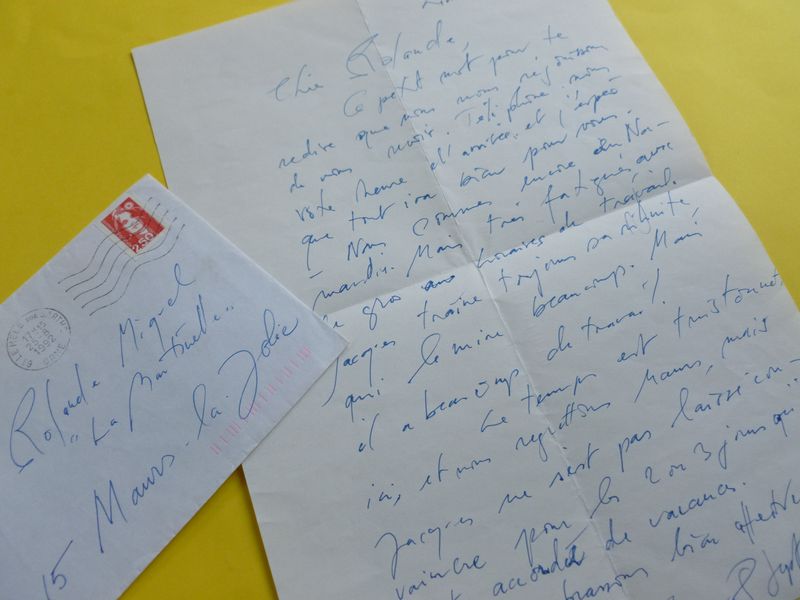 Chère Rolande,
Ce petit mot pour te
redire que nous nous réjouissons
de vous revoir. Téléphone nous
votre heure d'arrivée, et j'espère
que tout ira bien pour vous.
- Nous sommes encore en Nor-
mandie. Mais très fatigués, avec
de gros horaires de travail.
Jacques traîne toujours sa
qui le mine beaucoup. Mais
il a beaucoup de travail!
Le temps est tristounet
ici, et nous regrettons Maurs, mais
Jacques ne s'est pas laissé con-
vaincre pour les 2 ou 3 jours qu
accordés de vacances.
brassons bien affectu
2,50
1992
Rolande Miquel
"La Martinelle"
15 Maurs-la-Jolie